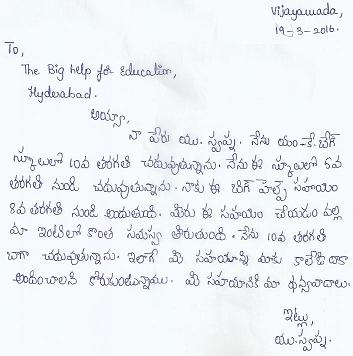 Vijayawada,
19-3-2016.
To,
The Big help for Education,
Hyderabad.
అయ్యా,
నా పేరు యు. స్వప్న. నేను యం.కె.బేగ్
స్కూలులో 10వ తరగతి చదువుతున్నాను. నేను ఈ స్కూలులో 6వ
తరగతి నుండి చదువుతున్నాను. నాకు ఈ బిగ్ హెల్ప్ సహాయం
8వ తరగతి నుండి అందుతుంది. మీరు ఈ సహాయం చేయడం వల్ల
మా ఇంటిలో కొంత సమస్య తీరుతుంది. నేను 10వ తరగతి
బాగా చదువుతున్నాను. ఇలాగే మీ సహాయాన్ని మాకు కాలేజి దాకా
అందించాలని కోరుకుంటున్నాము. మీ సహాయానికి మా ధన్యవాదాలు.
ఇట్లు,
యు.స్వప్న.